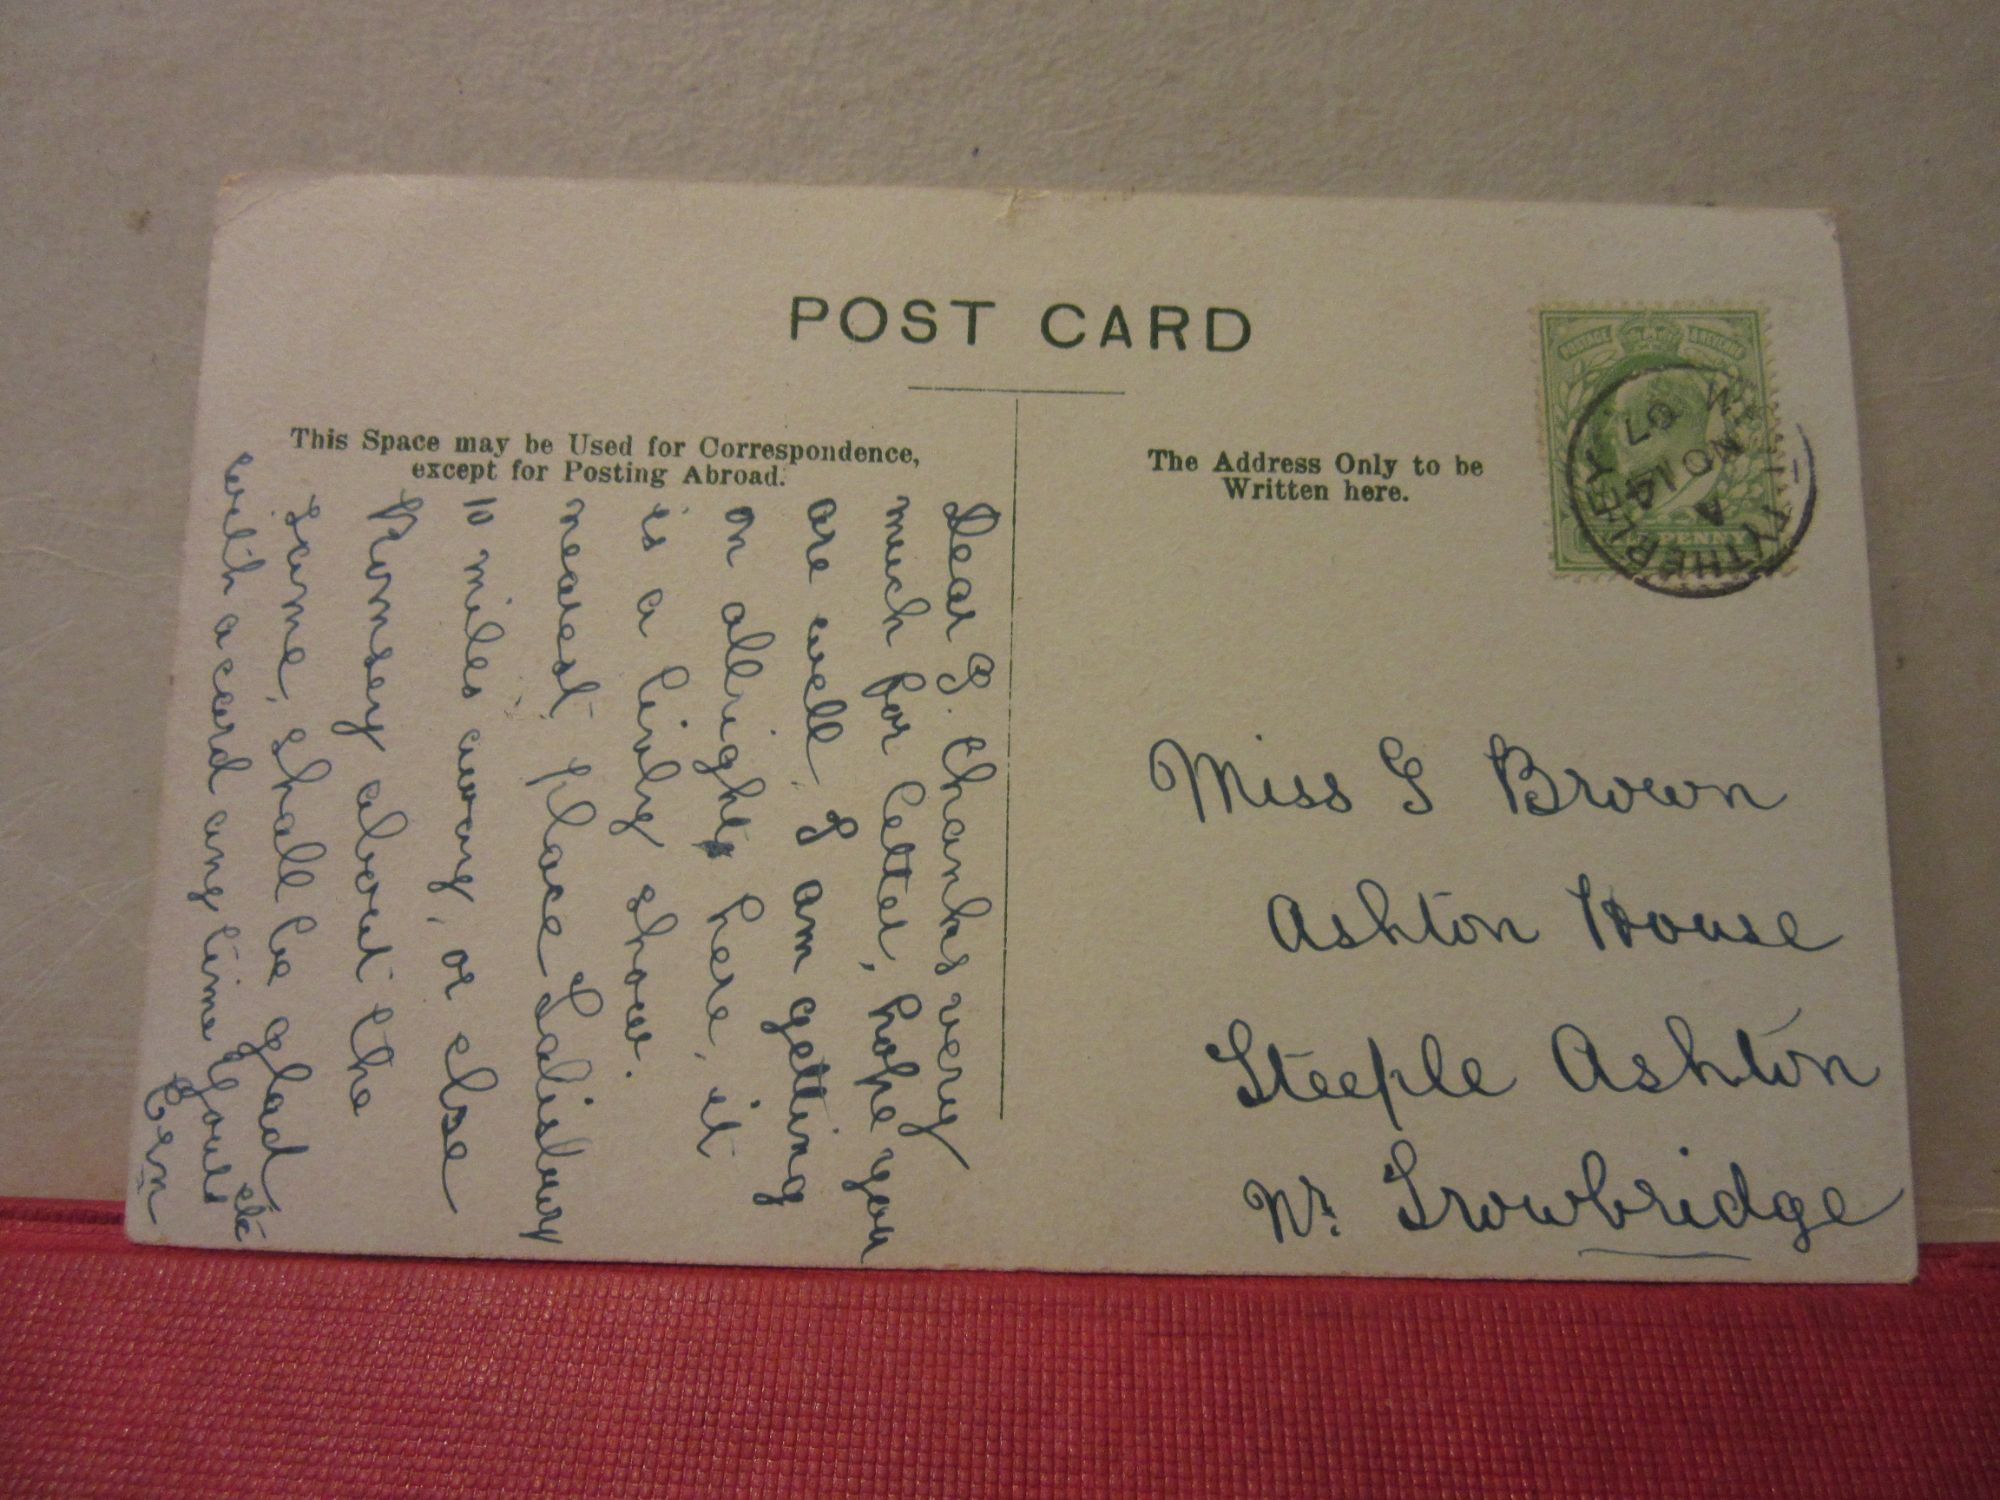 POST CARD
This Space may be Used for Correspondence,
except for Posting Abroad.
The Address Only to be
Written here.
POSTAGE & REVENUE
PENNY
TYTHERLEY
A
NO 14
07
Dear G. Thanks very
much for letter, hope you
are well. I am getting
on allright here, it
is a livly show.
nearest place Salisbury
10 miles away, or else
Romsey about the
same, shall be glad
with a card any time Yours etc
Ern
Miss G Brown
Ashton House
Steeple Ashton
Nr. Trowbridge